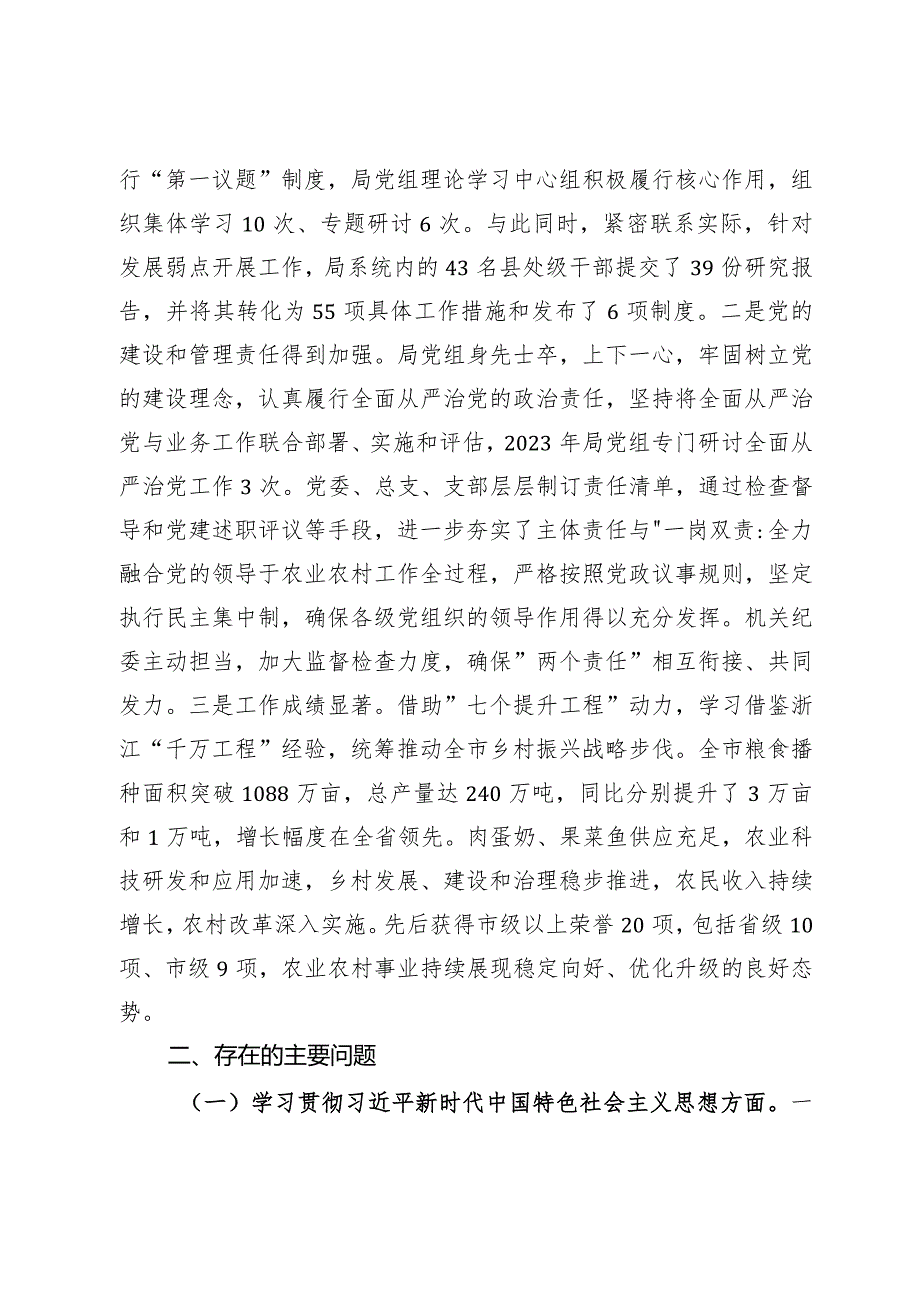 行“第一议题”制度，局党组理论学习中心组积极履行核心作用，组
织集体学习 10 次、专题研讨 6 次。与此同时，紧密联系实际，针对
发展弱点开展工作，局系统内的 43 名县处级干部提交了 39 份研究报
告，并将其转化为 55 项具体工作措施和发布了 6 项制度。二是党的
建设和管理责任得到加强。局党组身先士卒，上下一心，牢固树立党
的建设理念，认真履行全面从严治党的政治责任，坚持将全面从严治
党与业务工作联合部署、实施和评估，2023 年局党组专门研讨全面从
严治党工作 3 次。党委、总支、支部层层制订责任清单，通过检查督
导和党建述职评议等手段，进一步夯实了主体责任与"一岗双责:全力
融合党的领导于农业农村工作全过程，严格按照党政议事规则，坚定
执行民主集中制，确保各级党组织的领导作用得以充分发挥。机关纪
委主动担当，加大监督检查力度，确保”两个责任”相互衔接、共同
发力。三是工作成绩显著。借助”七个提升工程”动力，学习借鉴浙
江“千万工程”经验，统筹推动全市乡村振兴战略步伐。全市粮食播
种面积突破 1088 万亩，总产量达 240 万吨，同比分别提升了 3 万亩
和 1 万吨，增长幅度在全省领先。肉蛋奶、果菜鱼供应充足，农业科
技研发和应用加速，乡村发展、建设和治理稳步推进，农民收入持续
增长，农村改革深入实施。先后获得市级以上荣誉 20 项，包括省级 10
项、市级 9 项，农业农村事业持续展现稳定向好、优化升级的良好态
势。
二、存在的主要问题
（一）学习贯彻习近平新时代中国特色社会主义思想方面。一